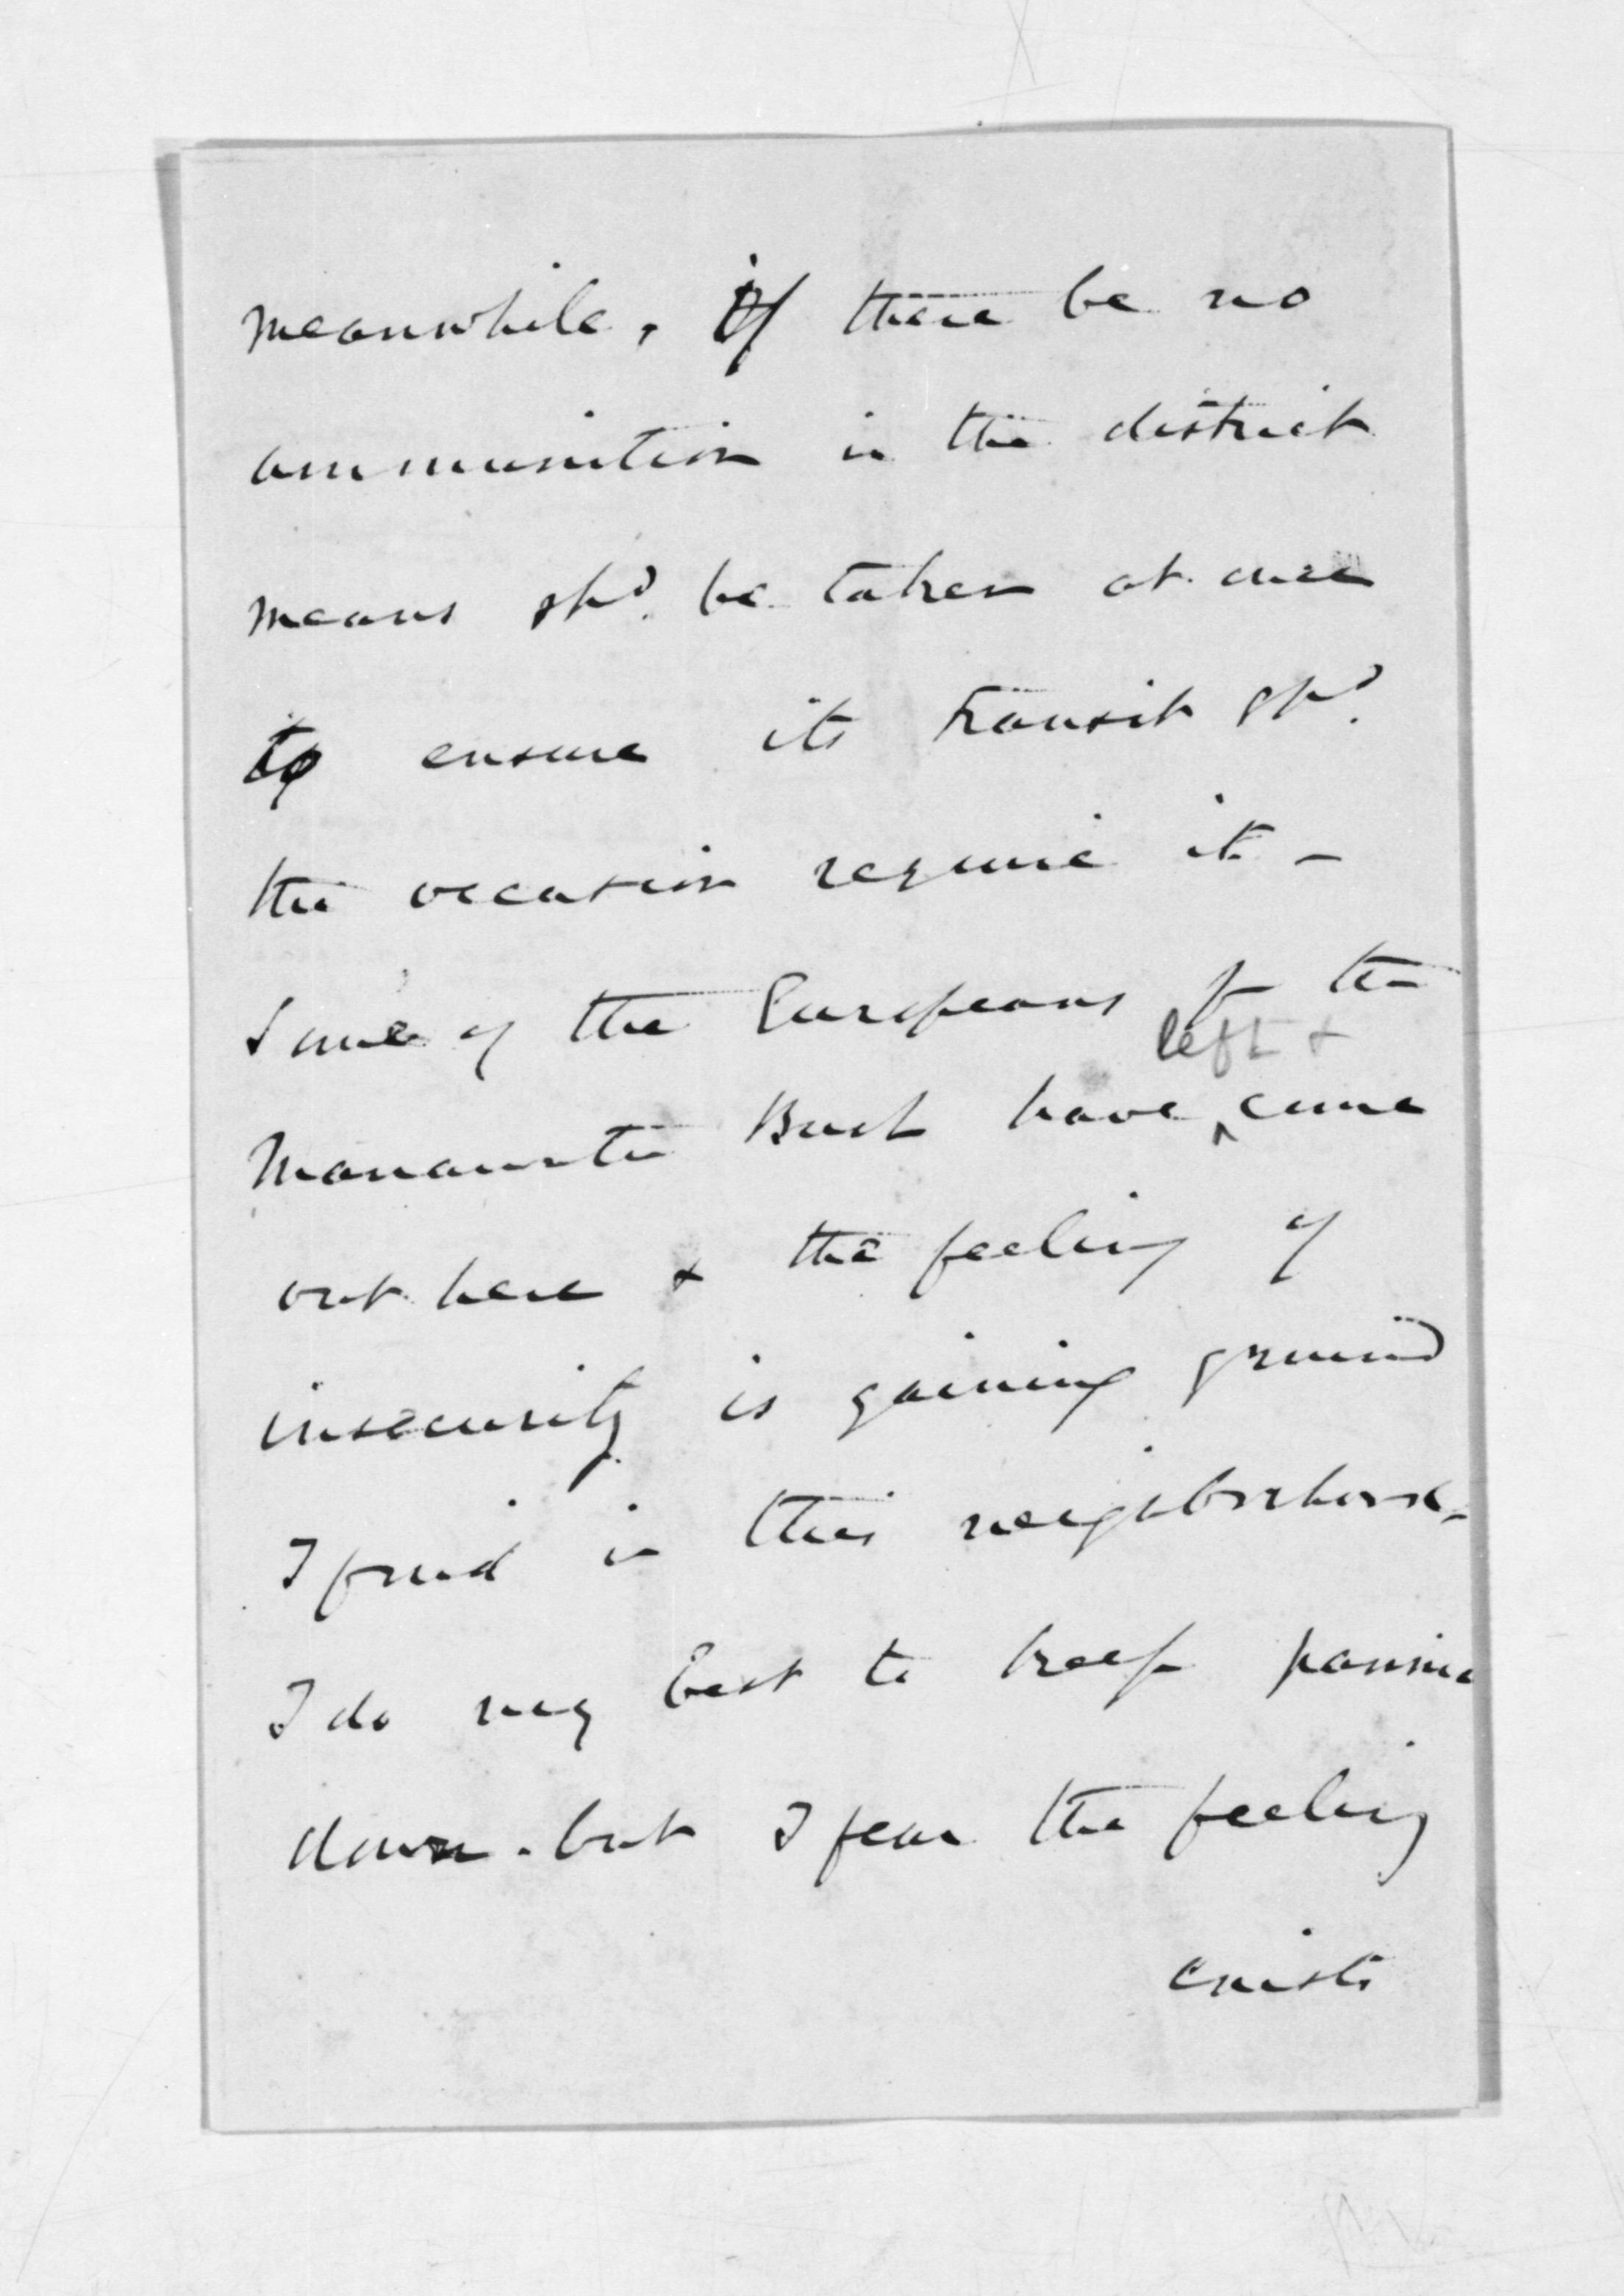 meanwhile, if there be no
ammunition in the district
means shd. be taken at once
to ensure its transit shd.
the occasion require it –
Some of the Europeans fm the
left &
Manawatu Bush have ^ come
out here & the feeling of
insecurity is gaining ground
I find in this neighborhood,
I do my best to keep
down. but I fear the feeling
exists